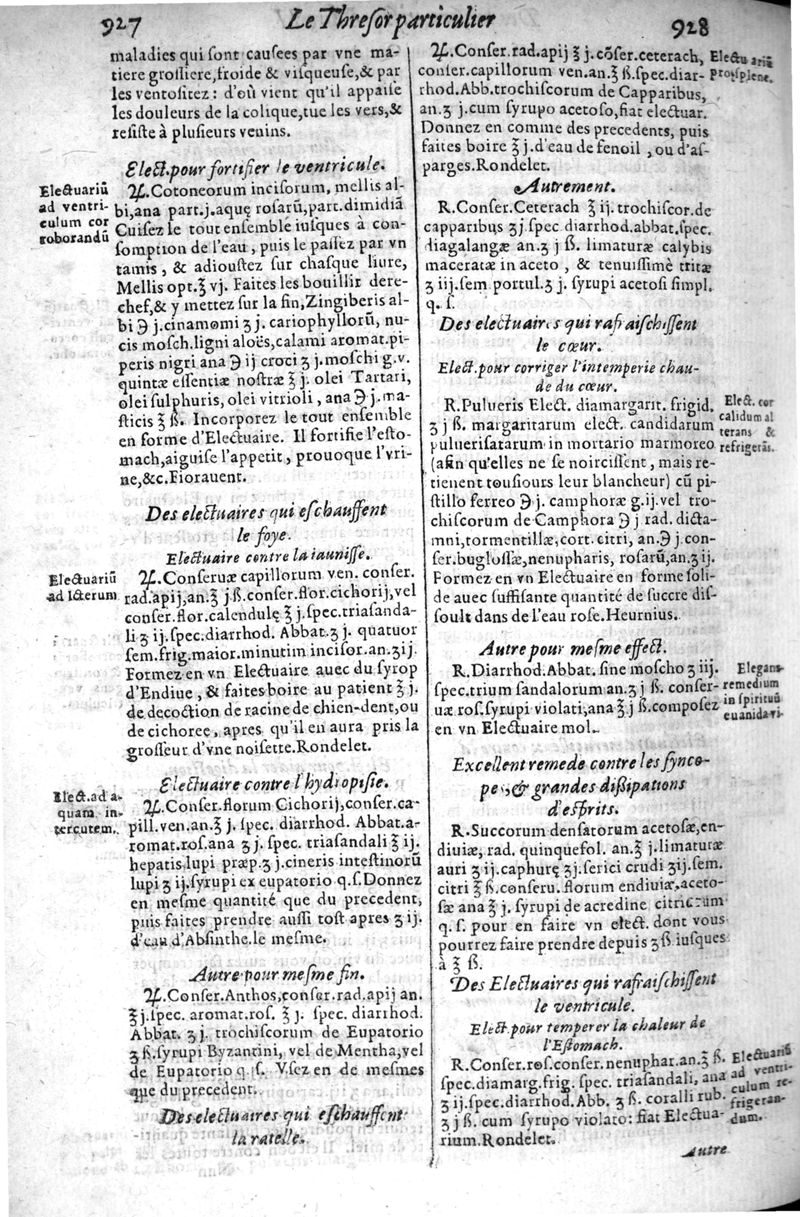 927
Le Thresor particulier
928
maladies qui sont causees par vne ma-
tiere grossiere, froide & visqueuse, & par
les ventositez : d'où vient qu'il appaise
les douleurs de la colique, tue les vers, &
resiste à plusieurs venins.
Elect. pour fortifier le ventricule.
Electuariū
ad ventri-
culum cor
roborandū
℞. Cotoneorum inciforum, mellis al-
bi, ana part. j. aquę rosarū, part. dimidiā
Cuisez le tout ensemble iusques à con-
somption de l'eau, puis le passez par vn
tamis, & adioustez sur chasque liure,
Mellis opt. ℥ vj. Faites les bouillir dere-
chef, & y mettez sur la fin, Zingiberis al-
bi ℈ j. cinamomi ʒ j. cariophyllorū, nu-
cis mosch. ligni aloës, calami aromat. pi-
peris nigri ana ℈ ij croci ʒ j. moschi g. v.
quintæ essentiæ nostræ ℥ j. olei Tartari,
olei sulphuris, olei vitrioli, ana ℈ j. ma-
sticis ℥ ß. Incorporez le tout ensemble
en forme d'Electuaire. Il fortifie l'esto-
mach, aiguise l'appetit, prouoque l'vri-
ne, &c. Fiorauent.
Des electuaires qui eschauffent
le foye.
Electuaire contre la iaunisse.
Electuariū
ad Icterum
℞. Conseruæ capillorum ven. conser.
rad. apij, an. ℥ j ß. conser. flor. cichorij, vel
conser. flor. calendulę ℥ j. spec. triasanda-
li ʒ ij. spec. diarrhod. Abbat. ʒ j. quatuor
sem. frig. maior. minutim incisor. an. ʒ ij
Formez en vn Electuaire auec du syrop
d'Endiue, & faites boire au patient ℥ j.
de decoction de racine de chien-dent, ou
de cichoree, apres qu'il en aura pris la
grosseur d'vne noisette. Rondelet.
Electuaire contre l'hydropisie.
Elect. ad a-
quam in-
tercutem.
℞. Conser. florum Cichorij, conser. ca-
pill. ven. an. ℥ j. spec. diarrhod. Abbat. a-
romat. ros. ana ʒ j. spec. triasandali ʒ ij.
hepatis lupi præp. ʒ j. cineris intestinorū
lupi ʒ ij. syrupi ex eupatorio q. s. Donnez
en mesme quantité que du precedent,
puis faites prendre aussi tost apres ʒ ij.
d'eau d'Absinthe. le mesme.
Autre pour mesme fin.
℞. Conser. Anthos, conser. rad. apij an.
℥ j. spec. aromat. ros. ℥ j. spec. diarrhod.
Abbat. ʒ j. trochiscorum de Eupatorio
ʒ ß. syrupi Byzantini, vel de Mentha, vel
de Eupatorio q. s. Vsez en de mesmes
que du precedent.
Des electuaires qui eschauffent
la ratelle.
℞. Conser. rad. apij ℥ j. cōser. ceterach,
conser. capillorum ven. an. ℥ ß. spec. diar-
rhod. Abb. trochiscorum de Capparibus,
an. ʒ j. cum syrupo acetoso, fiat electuar.
Donnez en comme des precedents, puis
faites boire ℥ j. d'eau de fenoil, ou d'as-
parges. Rondelet.
Electuariū
pro splene.
Autrement.
R. Conser. Ceterach ℥ ij. trochiscor. de
capparibus ʒ j. spec diarrhod. abbat. spec.
diagalangæ an. ʒ j ß. limaturæ calybis
maceratæ in aceto, & tenuissimè tritæ
ʒ iij. sem portul. ʒ j. syrupi acetosi simpl.
q. s.
Des electuaires qui rafraischissent
le cœur.
Elect. pour corriger l'intemperie chau-
de du cœur.
R. Pulueris Elect. diamargarit. frigid.
ʒ j ß. margaritarum elect. candidarum
puluerisatarum in mortario marmoreo
(afin qu'elles ne se noircissent, mais re-
tienent tousiours leur blancheur) cū pi-
stillo ferreo ℈ j. camphoræ g. ij. vel tro-
chiscorum de Camphora ℈ j rad. dicta-
mni, tormentillæ, cort. citri, an. ℈ j. con-
ser. buglossæ, nenupharis, rosarū, an. ʒ ij.
Formez en vn Electuaire en forme soli-
de auec suffisante quantité de succre dis-
soult dans de l'eau rose. Heurnius.
Elect. cor
calidum al
terans &
refrigerās.
Autre pour mesme effect.
R. Diarrhod. Abbat. sine moscho ʒ iij.
spec. trium sandalorum an. ʒ j ß. conser-
uæ ros. syrupi violati, ana ℥ j ß. composez
en vn Electuaire mol.
Elegans
remedium
in spirituū
euanida ri-
Excellent remede contre les synco-
pes, & grandes dissipations
d'esprits.
R. Succorum densatorum acetosæ, en-
diuiæ, rad. quinquefol. an. ℥ j. limaturæ
auri ʒ ij. caphurę ʒ j. serici crudi ʒ ij. sem.
citri ℥ ß. conseru. florum endiuiæ, aceto-
sæ ana ℥ j. syrupi de acredine citricrum
q. s. pour en faire vn elect. dont vous
pourrez faire prendre depuis ʒ ß iusques
à ℥ ß.
Des Electuaires qui rafraischissent
le ventricule.
Elect. pour temperer la chaleur de
l'Estomach.
R. Conser. ros. conser. nenuphar. an. ℥ ß.
spec. diamarg. frig. spec. triasandali, ana
ʒ ij. spec. diarrhod. Abb. ʒ ß. coralli rub.
ʒ j ß. cum syrupo violato: fiat Electua-
rium. Rondelet.
Electuariū
ad ventri-
culum re-
frigeran-
dum.
Autre